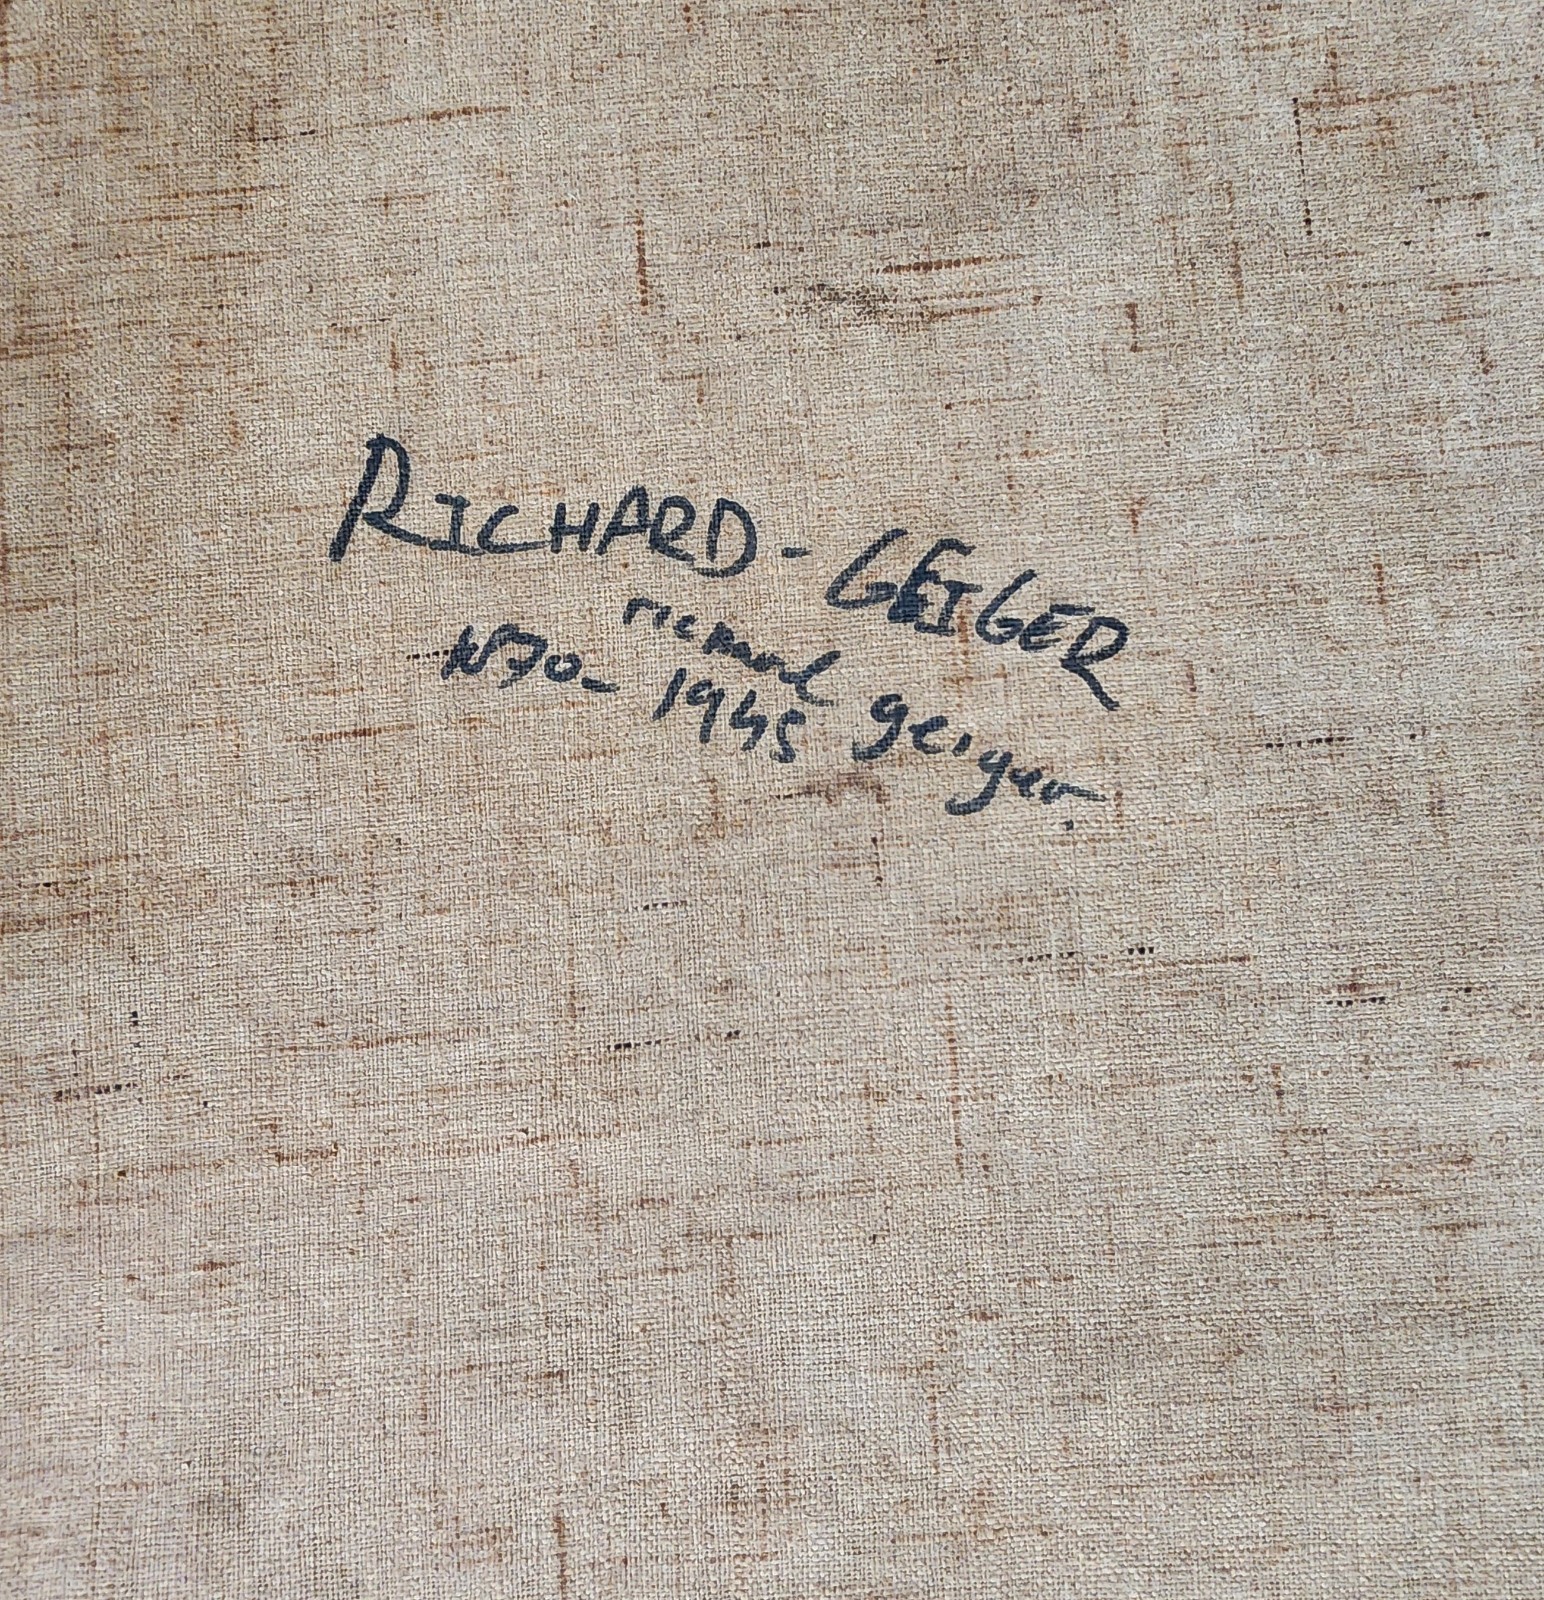 RICHARD - GEIGER
richard geiger
1870 - 1945